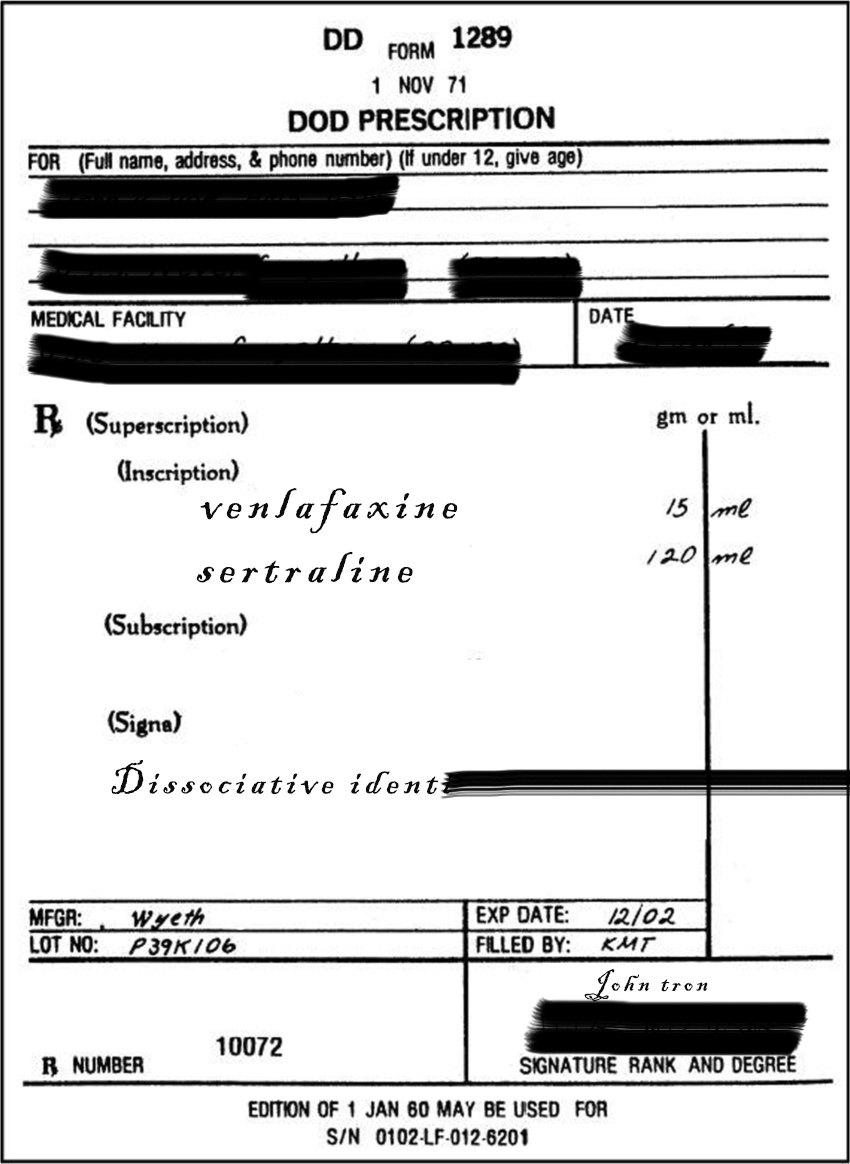 DD FORM 1289
1 NOV 71
DOD PRESCRIPTION
FOR (Full name, address, & phone number) (If under 12, give age)
MEDICAL FACILITY
DATE
℞ (Superscription)
gm or ml.
(Inscription)
venlafaxine 15 ml
sertraline 120 ml
(Subscription)
(Signa)
Dissociative identi
MFGR: Wyeth
EXP DATE: 12/02
LOT NO: P39K106
FILLED BY: KMT
John tron
10072
℞ NUMBER
SIGNATURE RANK AND DEGREE
EDITION OF 1 JAN 60 MAY BE USED FOR
S/N 0102-LF-012-6201